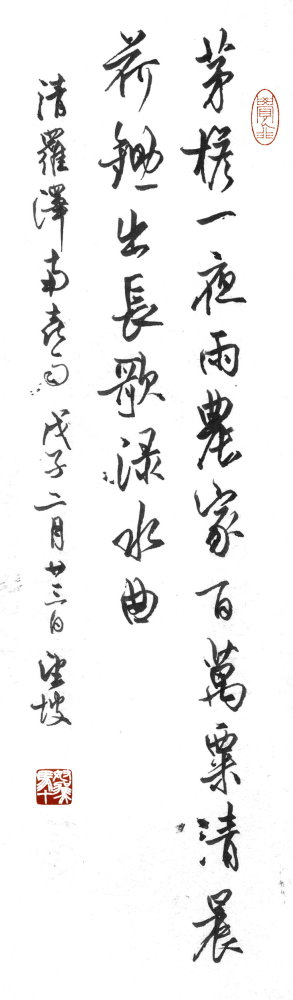 茅檐一夜雨農家百萬粟清晨
荷鋤出長歌淥水曲
清羅澤南喜雨 戊子二月廿三日 望坡